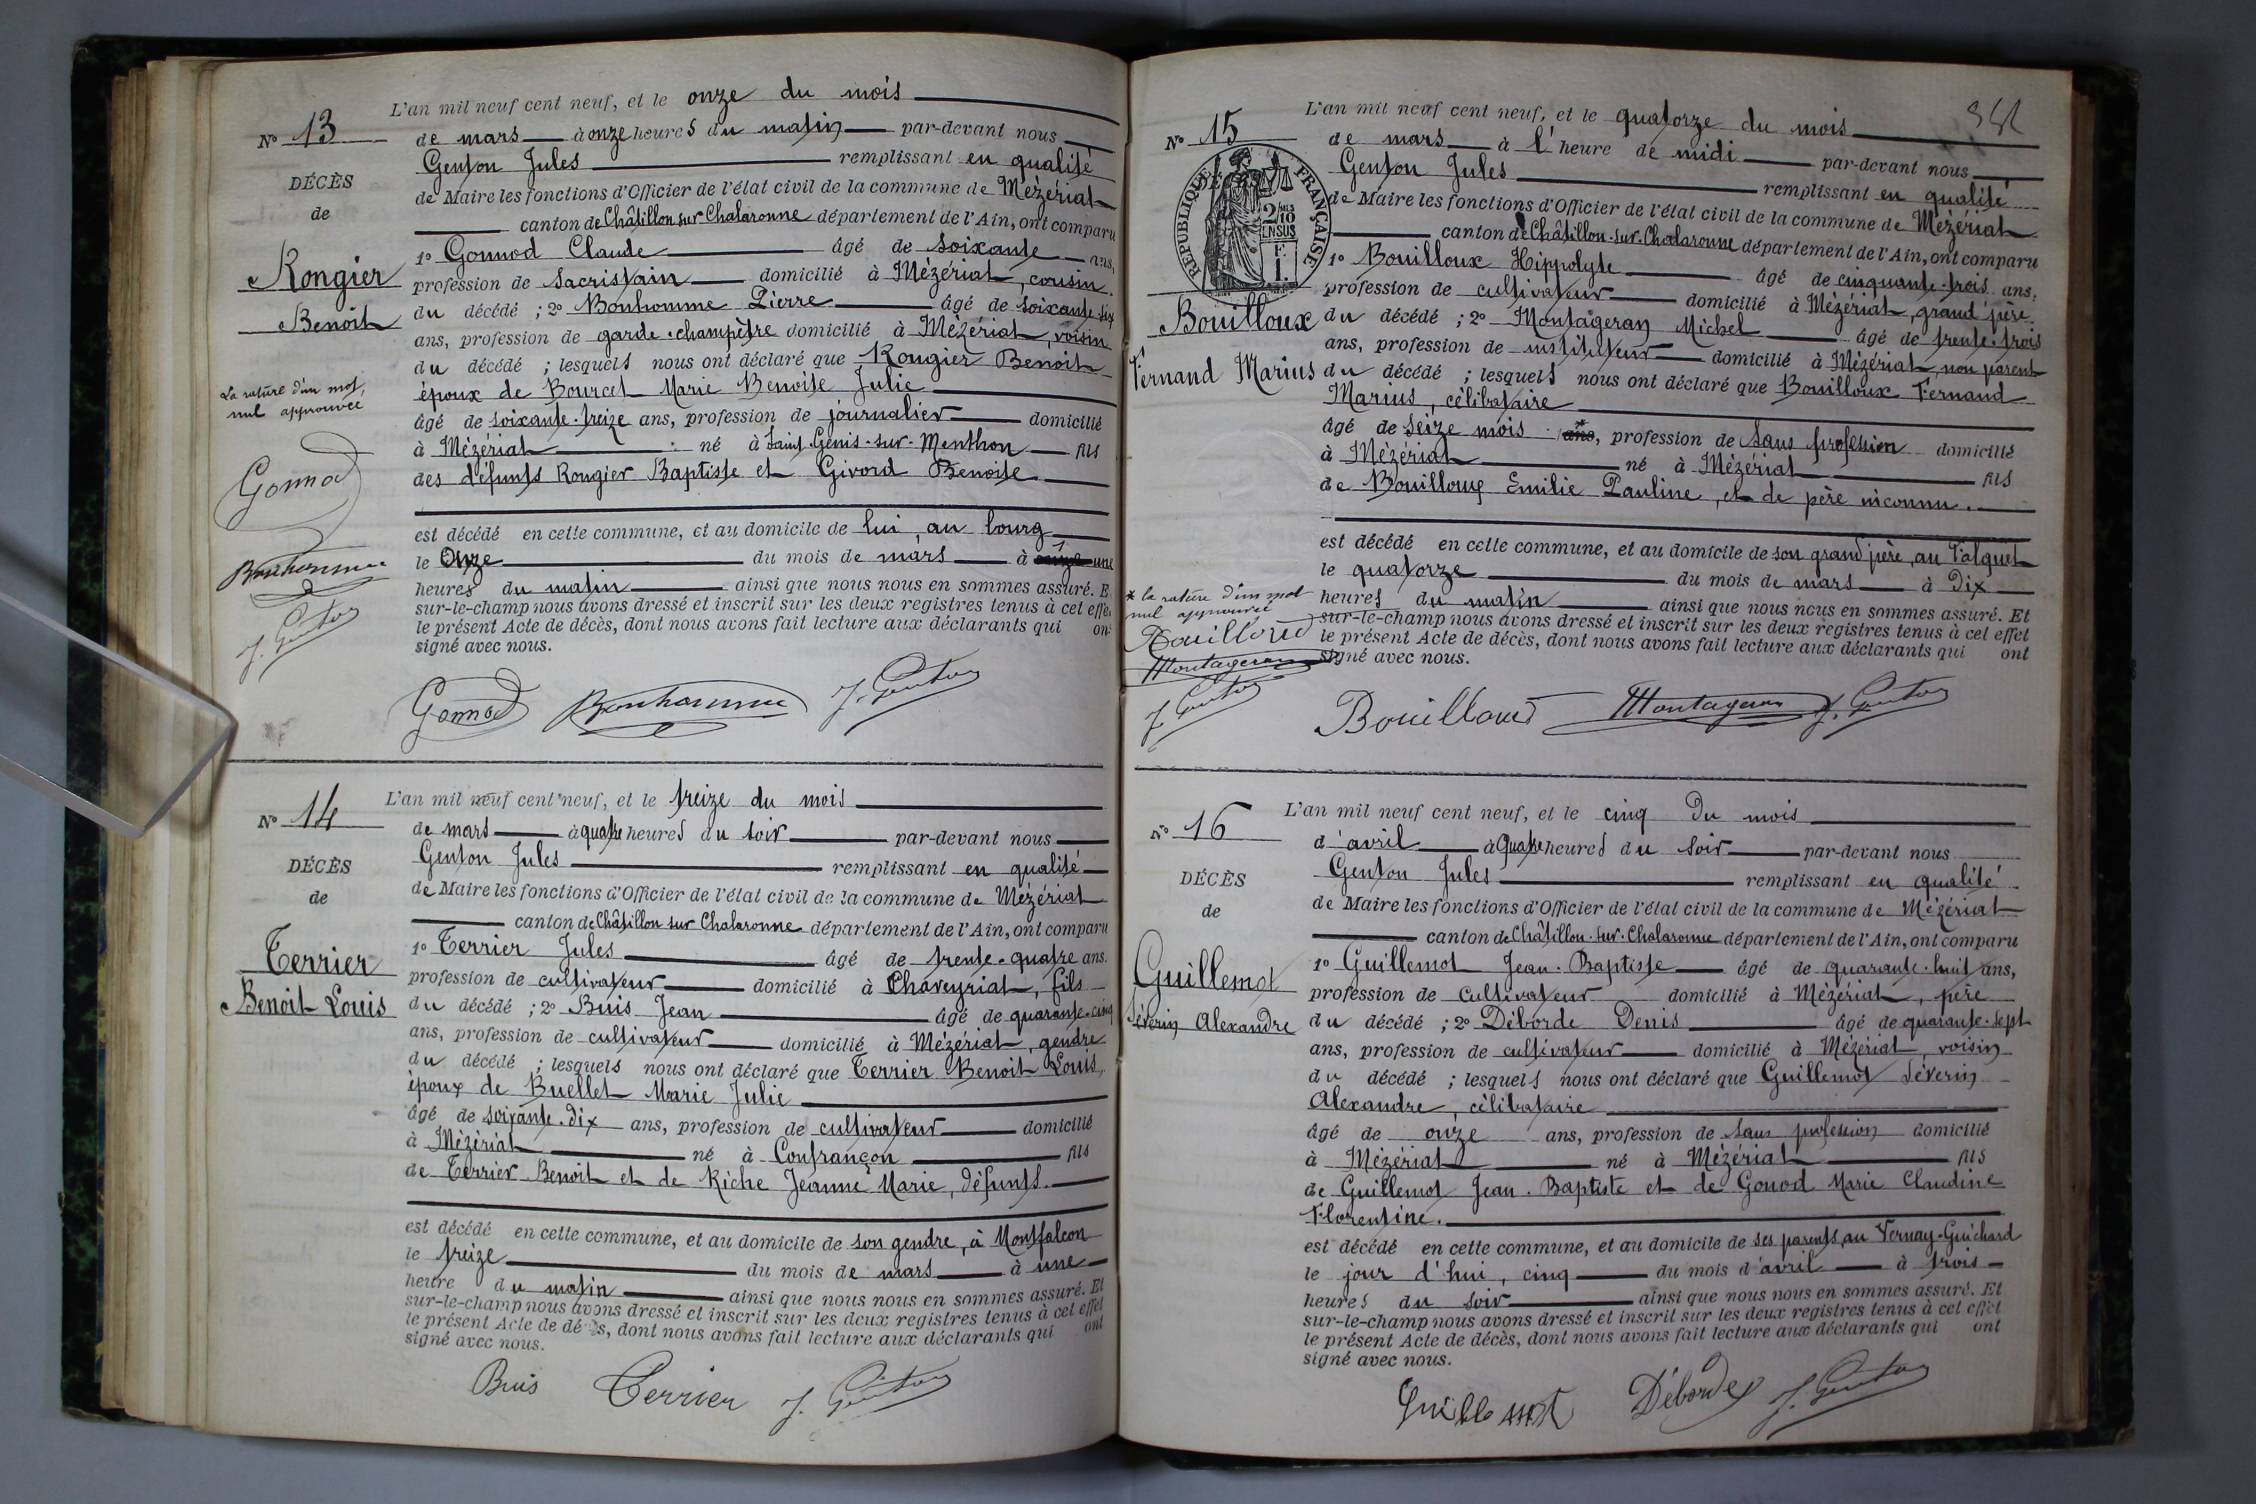 L'an mil neuf cent neuf, et le onze du mois
N° 13
de mars à onze heures du matin par-devant nous
Genton Jules remplissant en qualité
DÉCÈS
de Maire les fonctions d'Officier de l'état civil de la commune de Mézériat
de
canton de Châtillon sur Chalaronne département de l'Ain, ont comparu
1° Gonnod Claude âgé de soixante ans,
Rongier
profession de Sacristain domicilié à Mézériat, cousin
Benoit
du décédé ; 2° Bonhomme Pierre âgé de soixante six
ans, profession de garde-champêtre domicilié à Mézériat, voisin
du décédé ; lesquels nous ont déclaré que Rongier Benoit
époux de Bourcet Marie Benoite Julie
La rature d'un mot
nul approuvée
âgé de soixante-treize ans, profession de journalier domicilié
à Mézériat né à Saint-Genis-sur-Menthon fils
des défunts Rongier Baptiste et Givord Benoite
Gonnod
est décédé en cette commune, et au domicile de lui, au bourg
le Onze du mois de mars à onze une
Bonhomme
heures du matin ainsi que nous nous en sommes assuré. E
sur-le-champ nous avons dressé et inscrit sur les deux registres tenus à cet effe
le présent Acte de décès, dont nous avons fait lecture aux déclarants qui on
signé avec nous.
J. Genton
Gonnod Bonhomme J. Genton
L'an mil neuf cent neuf, et le treize du mois
N° 14
de mars à quatre heures du soir par-devant nous
Genton Jules remplissant en qualité
DÉCÈS
de Maire les fonctions d'Officier de l'état civil de la commune de Mézériat
de
canton de Châtillon sur Chalaronne département de l'Ain, ont comparu
1° Terrier Jules âgé de trente-quatre ans.
Terrier
profession de cultivateur domicilié à Chaveyriat, fils
Benoit Louis
du décédé ; 2° Buis Jean âgé de quarante-cinq
ans, profession de cultivateur domicilié à Mézériat, gendre
du décédé ; lesquels nous ont déclaré que Terrier Benoit Louis,
époux de Buellet Marie Julie
âgé de soixante-dix ans, profession de cultivateur domicilié
à Mézériat né à Confrançon fils
de Terrier Benoit et de Riche Jeanne Marie, défunts.
est décédé en cette commune, et au domicile de son gendre, à Montfalcon
le treize du mois de mars à une
heure du matin ainsi que nous nous en sommes assuré. Et
sur-le-champ nous avons dressé et inscrit sur les deux registres tenus à cet effet
le présent Acte de décès, dont nous avons fait lecture aux déclarants qui ont
signé avec nous.
Buis Terrier J. Genton
L'an mil neuf cent neuf, et le quatorze du mois
N° 15
de mars à l'heure de midi par-devant nous
Genton Jules remplissant en qualité
RÉPUBLIQUE FRANÇAISE
2/10 EN SUS
1 F.
de Maire les fonctions d'Officier de l'état civil de la commune de Mézériat
canton de Châtillon-sur-Chalaronne département de l'Ain, ont comparu
1° Bouilloux Hippolyte âgé de cinquante-trois ans,
profession de cultivateur domicilié à Mézériat, grand'père
Bouilloux
du décédé ; 2° Montageran Michel âgé de trente-trois
ans, profession de instituteur domicilié à Mézériat, non parent
Fernand Marius
du décédé ; lesquels nous ont déclaré que Bouilloux Fernand
Marius, célibataire
âgé de Seize mois ans, profession de Sans profession domicilié
à Mézériat né à Mézériat fils
de Bouilloux Emilie Pauline, et de père inconnu.
est décédé en cette commune, et au domicile de son grand'père, au
le quatorze du mois de mars à Dix
* la rature d'un mot
nul approuvée
heures du matin ainsi que nous nous en sommes assuré. Et
sur-le-champ nous avons dressé et inscrit sur les deux registres tenus à cet effet
Bouilloux
le présent Acte de décès, dont nous avons fait lecture aux déclarants qui ont
Montageran
signé avec nous.
J. Genton
Bouilloux Montageran J. Genton
L'an mil neuf cent neuf, et le cinq Du mois
N° 16
d'avril à Quatre heures du soir par-devant nous
Genton Jules remplissant en qualité
DÉCÈS
de Maire les fonctions d'Officier de l'état civil de la commune de Mézériat
de
canton de Châtillon-sur-Chalaronne département de l'Ain, ont comparu
1° Guillemot Jean-Baptiste âgé de quarante-huit ans,
Guillemot
profession de Cultivateur domicilié à Mézériat, père
Séverin Alexandre
du décédé ; 2° Déborde Denis âgé de quarante-sept
ans, profession de cultivateur domicilié à Mézériat, voisin
du décédé ; lesquels nous ont déclaré que Guillemot Séverin
Alexandre, célibataire
âgé de onze ans, profession de Sans profession domicilié
à Mézériat né à Mézériat fils
de Guillemot Jean-Baptiste et de Gonod Marie Claudine
Florentine.
est décédé en cette commune, et au domicile de ses parents, au Vernay-Guichard
le jour d'hui, cinq du mois d'avril à trois
heures du soir ainsi que nous nous en sommes assuré. Et
sur-le-champ nous avons dressé et inscrit sur les deux registres tenus à cet effet
le présent Acte de décès, dont nous avons fait lecture aux déclarants qui ont
signé avec nous.
Guillemot Débordes J. Genton